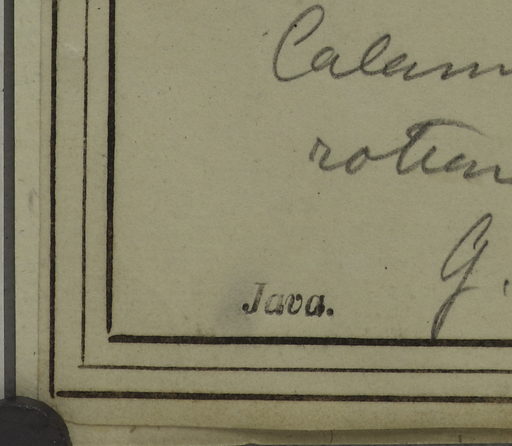 Calam
rotan
G.
Java.